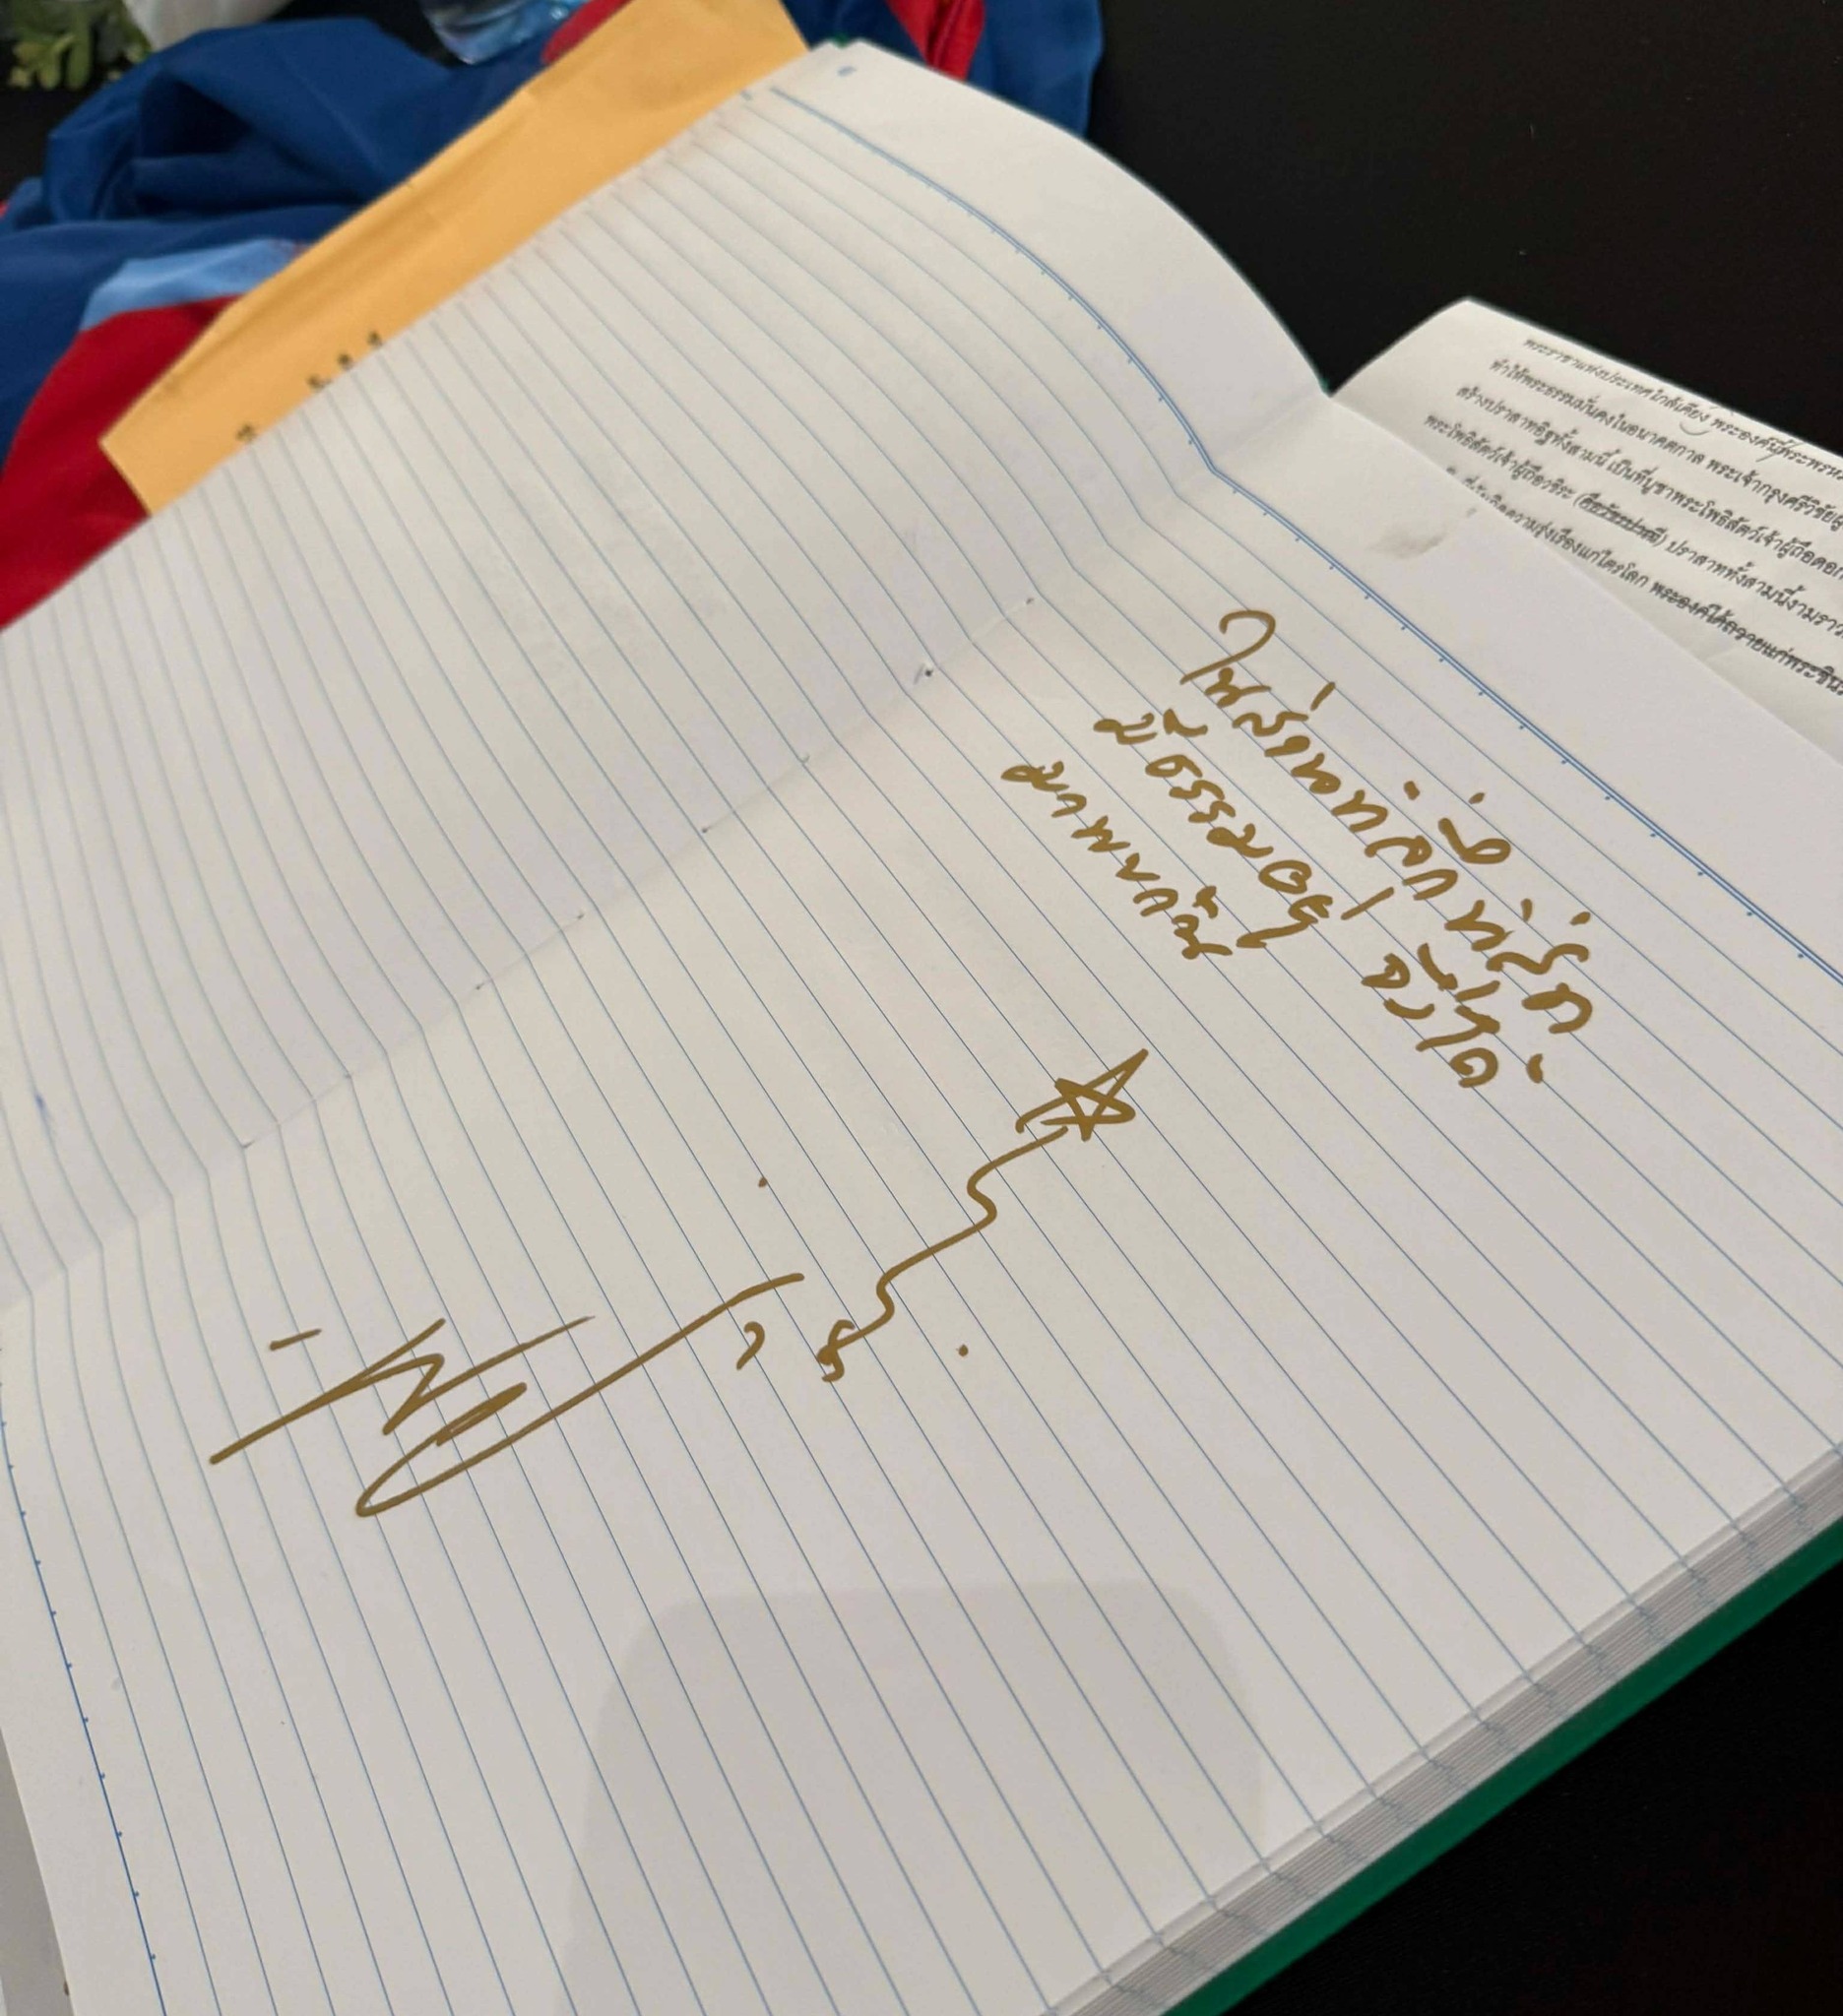 ในส่วนที่ลึกที่สุด
มีธรรมอยู่ จึงได้
มาพบกัน
พระราชาแห่งประเทศใกล้เคียง
ทำให้พระธรรมมั่นคงในอนาคตกาล พระเจ้ากรุงศรีวิชัย
สร้างปราสาทอิฐทั้งสามนี้ เป็นที่บูชาพระโพธิสัตว์เจ้าผู้ถือดอก
พระโพธิสัตว์เจ้าผู้ถือวชิระ ปราสาททั้งสามนี้งามราว
ความรุ่งเรืองแก่ไตรโลก พระองค์ได้ถวายแก่พระชิน